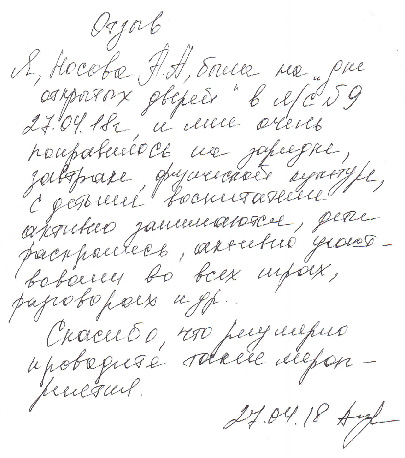 Отзыв
Я, Носова А.А, была на „дне
открытых дверей" в д/с №9
27.04.18г, и мне очень
понравилось на зарядке,
завтраке, физической культуре,
с детьми воспитатели
активно занимаются, дети
раскрылись, активно участ-
вовали во всех играх,
разговорах и др..
Спасибо, что регулярно
проводите такие мероп-
риятия.
27.04.18